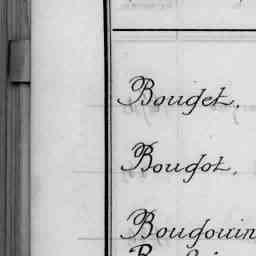 Bouget.
Bougot.
Bougouin